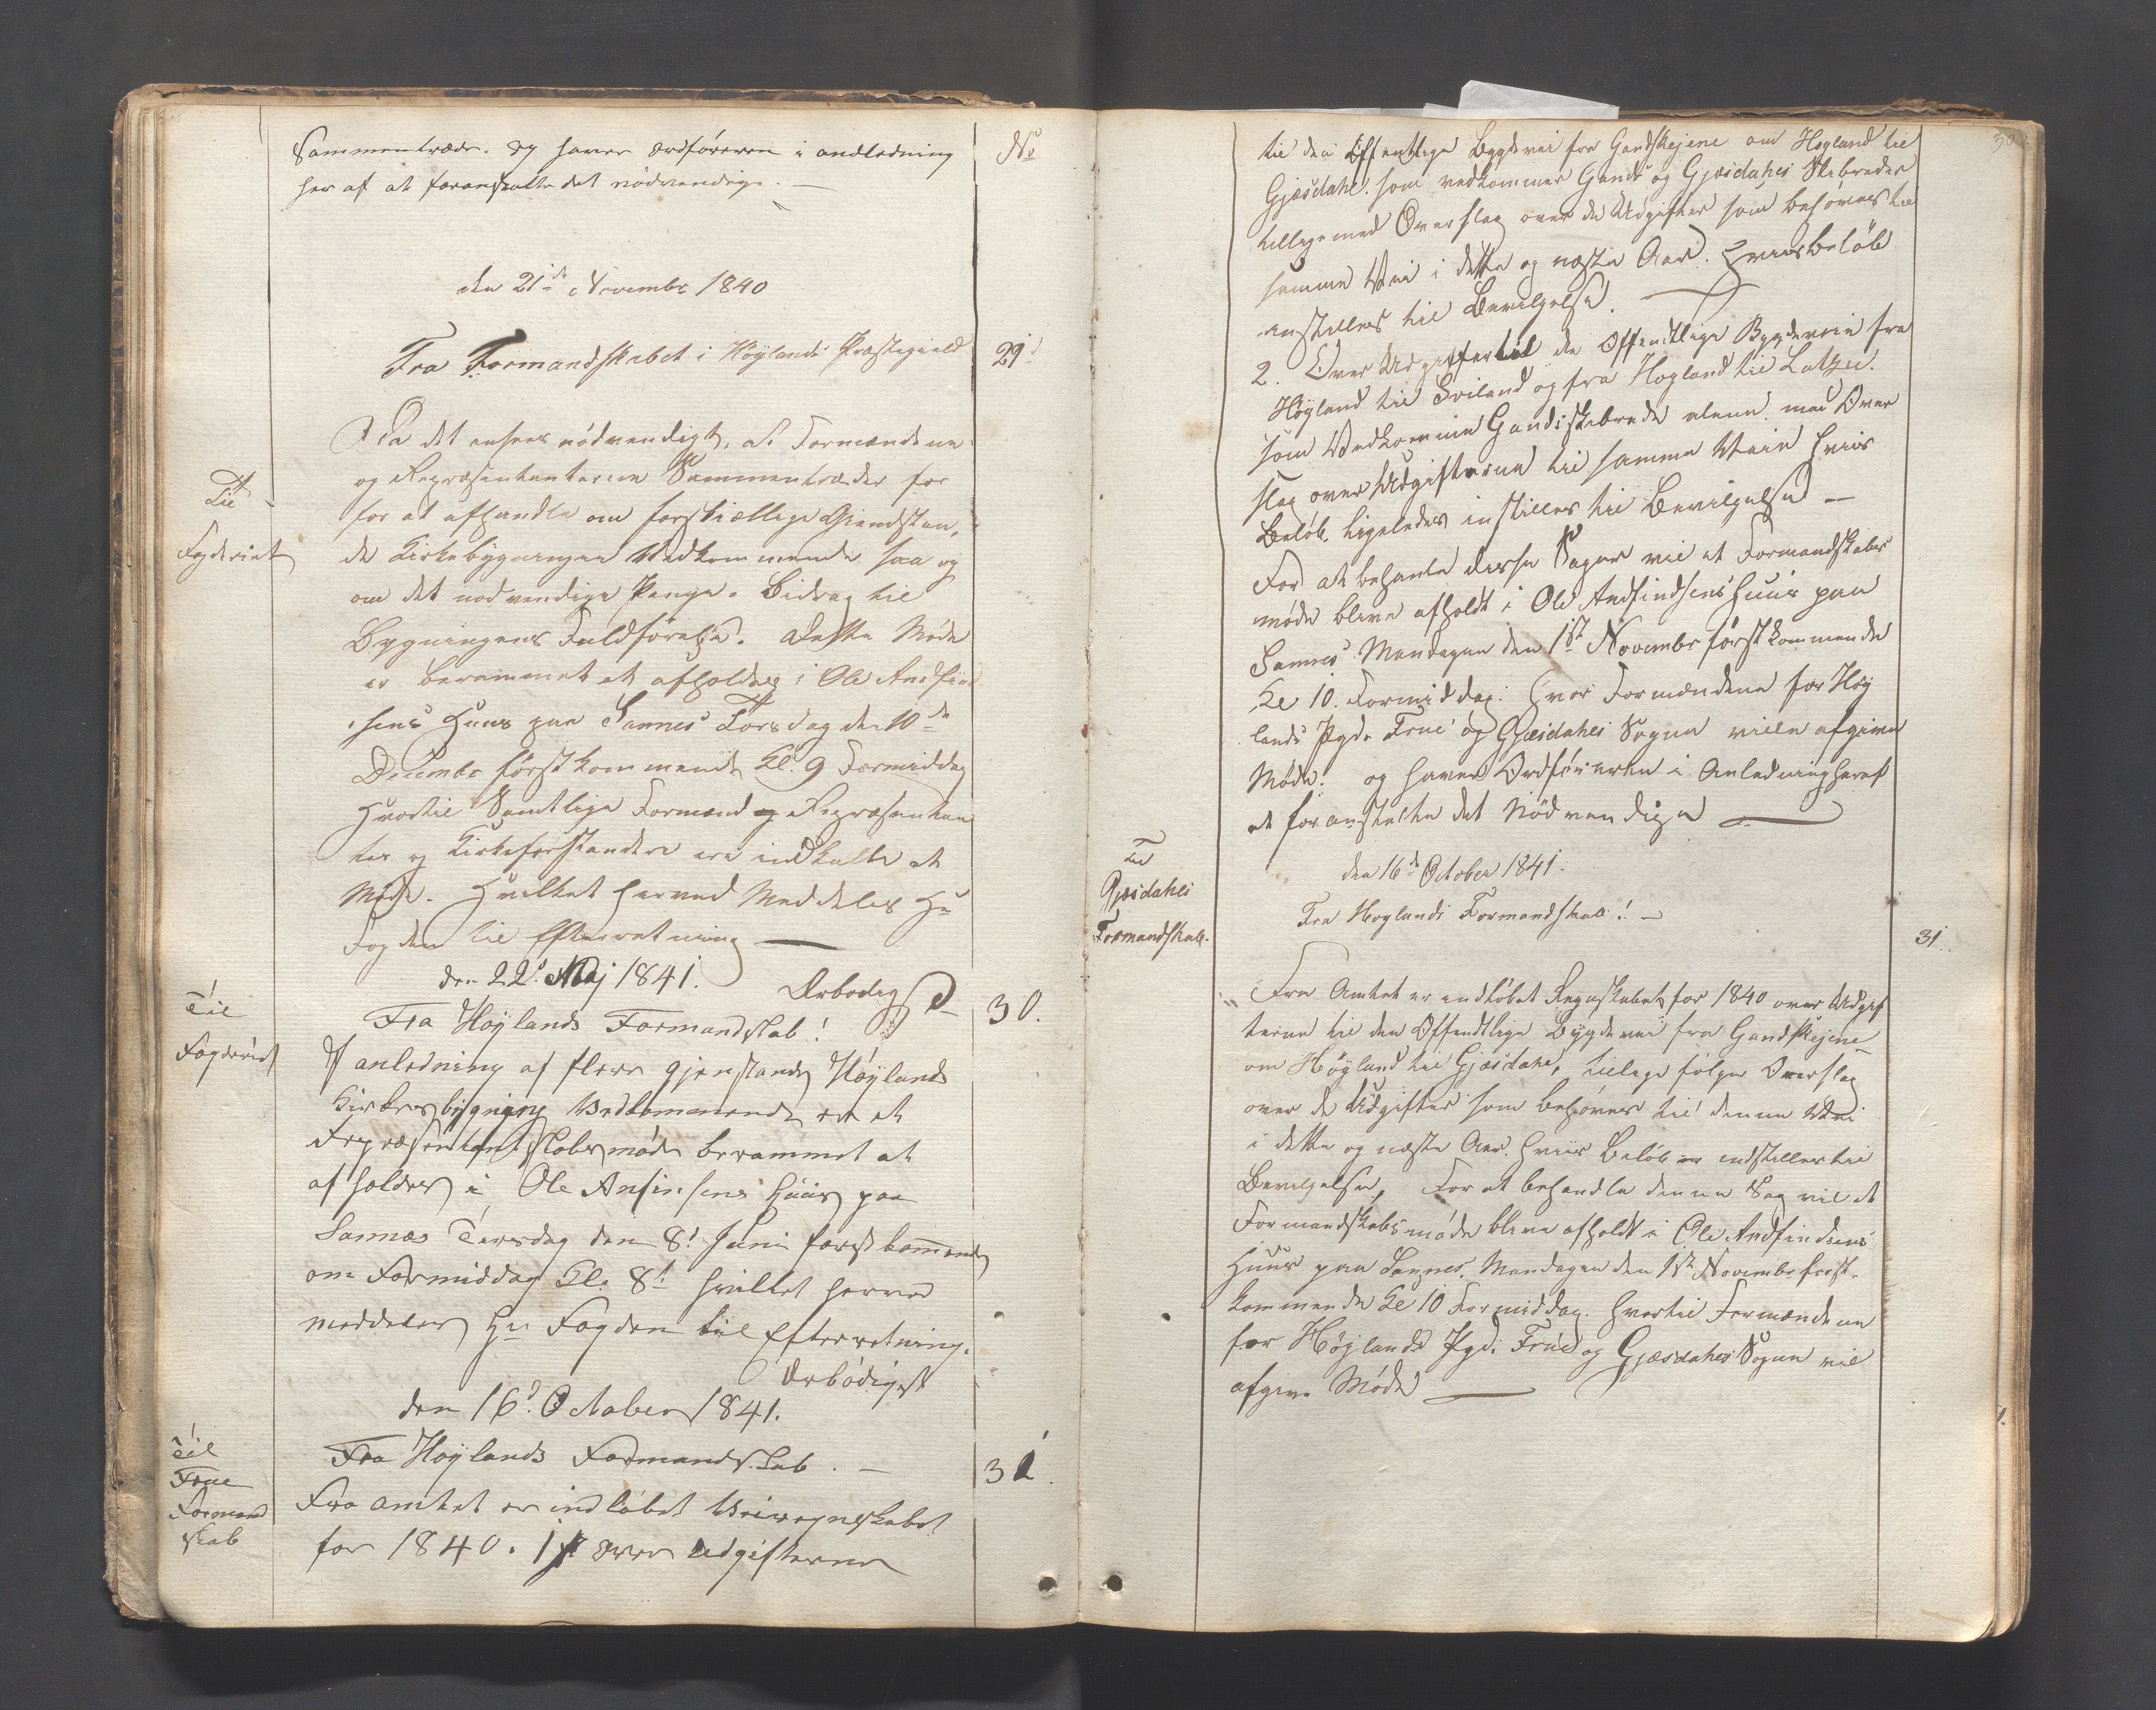 Sammentræde. og haver Ordføreren i andledning
her af at foranstalte det nödvendige. —
No
den 21de Novembr 1840
Fra Formandskabet i Höylands Præstegield
29
Til
Fogderiet
Da det ansees nödvendigt, at Formændene
og Repræsentanterne Sammentræder for
for at afhandle om forskiællige Gienstan,
de Kirkebygningen Vedkommende, saa og
om det nødvendige Penge-Bidrag til
Bygningens Fuldförelse. dette Møde
er berammet at afholdes i Ole Andfind
sens Huus paa Sannes Torsdag den 10de
Decembr förstkommende Kl. 9 Formiddag
hvortil Samtlige Formænd og Repræsentan
ter og Kirkeforstandere ere indkaldte at
Møde. Hvilket herved Meddeles Hr
Fogden til Efterretning —
Til
Fogderiet
den 22d Maj 1841.
Ærbødigst
30.
Fra Höylands Formandskab!
I anledning af flere gjenstande Höylands
Kirkesbygning Vedkommende er et
Repræsentantskabsmøde berammet at
afholdes i Ole Anfinsens Huus paa
Sannes Tirsdag den 8d Juni førstkommende
om Formiddag Kl. 8t hvilket herved
meddeles Hr Fogden til Efterretning.
Ærbödigst
den 16d October 1841.
Til
Frue
Formand
skab
Fra Höylands Formandskab. —
31.
Fra amtet er indløbet Veiregnskabet
for 1840. 1st over Udgifterne
30
til den Offentlige Bygdevei fra Gandskejene om Høyland til
Gjæsdahl. som vedkommer Gands og Gjæsdahls Skibreder
tilligemed Overslag over de Udgifter som behøves til
samme Vei i dette og næste Aar. hvisbeløb
anstilles til Bevilgelse.
2. Over Udgifter til de Offentlige Bygdeveie fra
Höyland til Sviland og fra Høyland til
som Vedkomme Gands skibrede alene. med Over
slag over Udgifterne til samme Veie hvis
Beløb, ligeledes instilles til Bevilgelse —
For at behandle disse Sager vil et Formandskabs
møde blive afholdt i Ole Andfindsens Huus paa
Sannes Mandagen den 1st Novembr förstkommende
Kl 10. Formiddag: hvor Formændene for Høy
lands Pgd. Frue og Gjæsdahls Sogne ville afgive
Møde: og haver Ordføreren i Anledning heraf
at foranstalte det Nödvendige —
Til
Gjæsdahls
Formandskab.
den 16de October 1841.
Fra Høylands Formandskab! —
31.
Fra Amtet er indløbet Regnskabet for 1840 over Udgif
terne til den Offendtlige Bygdevei fra Gandskejene
om Höyland til Gjæsdahl, tillige følger Overslag
over de Udgifter som behöves til denne Vei
i dette og næste Aar. hviis Beløb er indstilles til
Bevilgelse, For at behandle denne Sag vil et
Formandskabsmøde blive afholdt i Ole Andfindsens
Huus paa Sannes, Mandagen den 1st Novembr først-
kommende Kl 10 Formiddag. hvortil Formændene
for Höjlands Pgd. Frue og Gjæsdahls Sogne vil
afgive Møde —